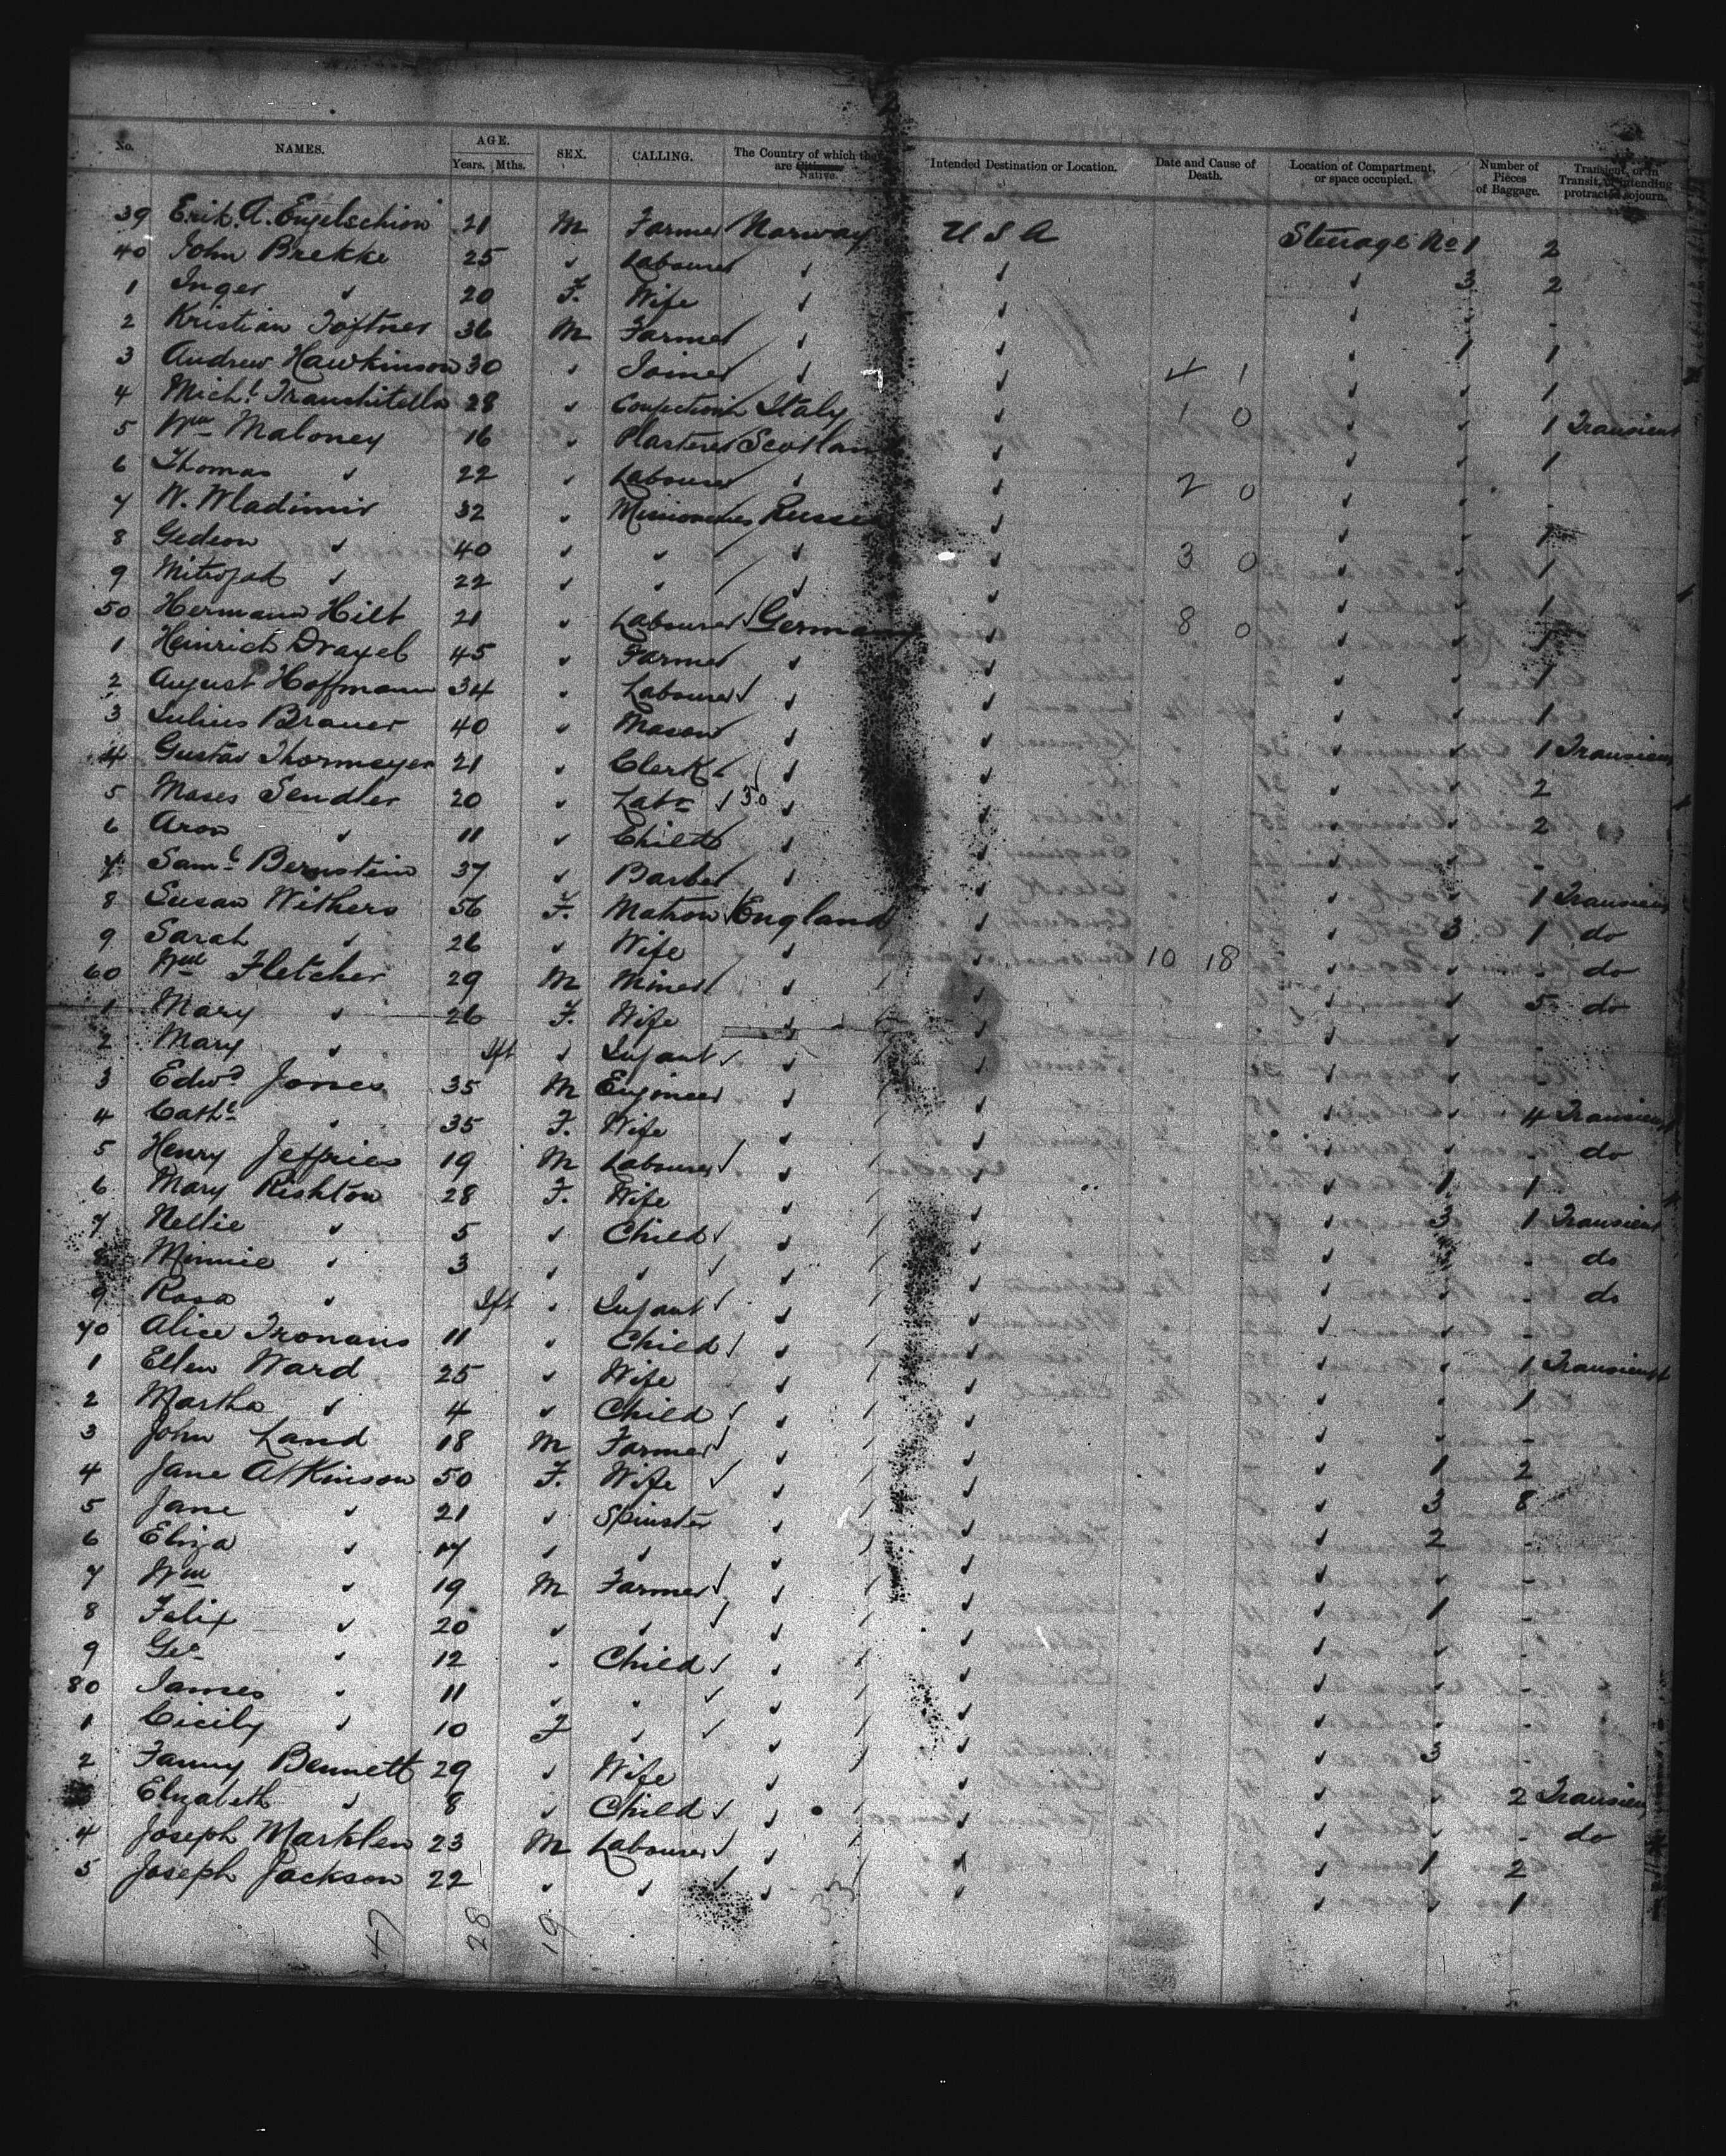 No. NAMES. AGE. Years. Mths. SEX. CALLING. The Country of which they are Citizens Native. Intended Destination or Location. Date and Cause of Death. Location of Compartment, or space occupied. Number of Pieces of Baggage. Transient, or in Transit, or intending protracted sojourn.
39 Erik. A. Engelschion 21 M Farmer Norway U S A Steerage No 1 2
40 John Brekke 25 " Labourer " " " 3 2
1 Inger " 20 F. Wife " " " " -
2 Kristian Toftner 36 M Farmer " " " 1 1
3 Andrew Hawkinson 30 " Joiner " " 4 1 " " 1
4 Michl. Tranchitella 28 " Confection Italy " 1 0 " " 1 Transient
5 Wm Maloney 16 " Plasterer Scotland " " " 1
6 Thomas " 22 " Labourer " " 2 0 " " -
7 W. Wladimir 32 " Missionaries Russia " " " 1
8 Gedeon " 40 " " " " 3 0 " " 1
9 Mitrofat " 22 " " " " " " 1
50 Hermann Hilt 21 " Labourer Germany " 8 0 " " 1
1 Heinrich Draxel 45 " Farmer " " " " 1
2 August Hoffmann 34 " Labourer " " " " 1
3 Julius Brauer 40 " Mason " " " " 1 Transient
4 Gustav Thormeyer 21 " Clerk " " " " 2
5 Moses Sendler 20 " Labr 30 " " " " 2
6 Aron " 11 " Child " " " " -
7 Saml. Bernstein 37 " Barber " " " " 1 Transient
8 Susan Withers 56 F. Matron England " " 3 1 do
9 Sarah " 26 " Wife " " 10 18 " " - do
60 Wm Fletcher 29 M Miner " " " " 5 do
1 Mary " 26 F. Wife " " " " -
2 Mary " Ift " Infant " " " " -
3 Edwd Jones 35 M Engineer " " " " 4 Transient
4 Cathe " 35 F. Wife " " " " - do
5 Henry Jeffries 19 M Labourer " " " 1 1
6 Mary Rishton 28 F. Wife " " " 3 1 Transient
7 Nellie " 5 " Child " " " " - do
8 Minnie " 3 " " " " " " - do
9 Rosa " Ift " Infant " " " " -
70 Alice Tronans 11 " Child " " " " 1 Transient
1 Ellen Ward 25 " Wife " " " " 1
2 Martha " 4 " Child " " " " -
3 John Land 18 M Farmer " " " 1 2
4 Jane Atkinson 50 F. Wife " " " 3 8
5 Jane " 21 " Spinster " " " 2 -
6 Eliza " 17 " " " " " " -
7 Wm " 19 M Farmer " " " 1 -
8 Felix " 20 " " " " " " -
9 Geo " 12 " Child " " " " -
80 James " 11 " " " " " " -
1 Cicily " 10 F " " " " 3 -
2 Fanny Bennett 29 " Wife " " " " 2 Transient
Elizabeth " 8 " Child " " " " - do
4 Joseph Marklew 23 M Labourer " " " 1 2
5 Joseph Jackson 22 " " " " " " 1
47 28 19 33